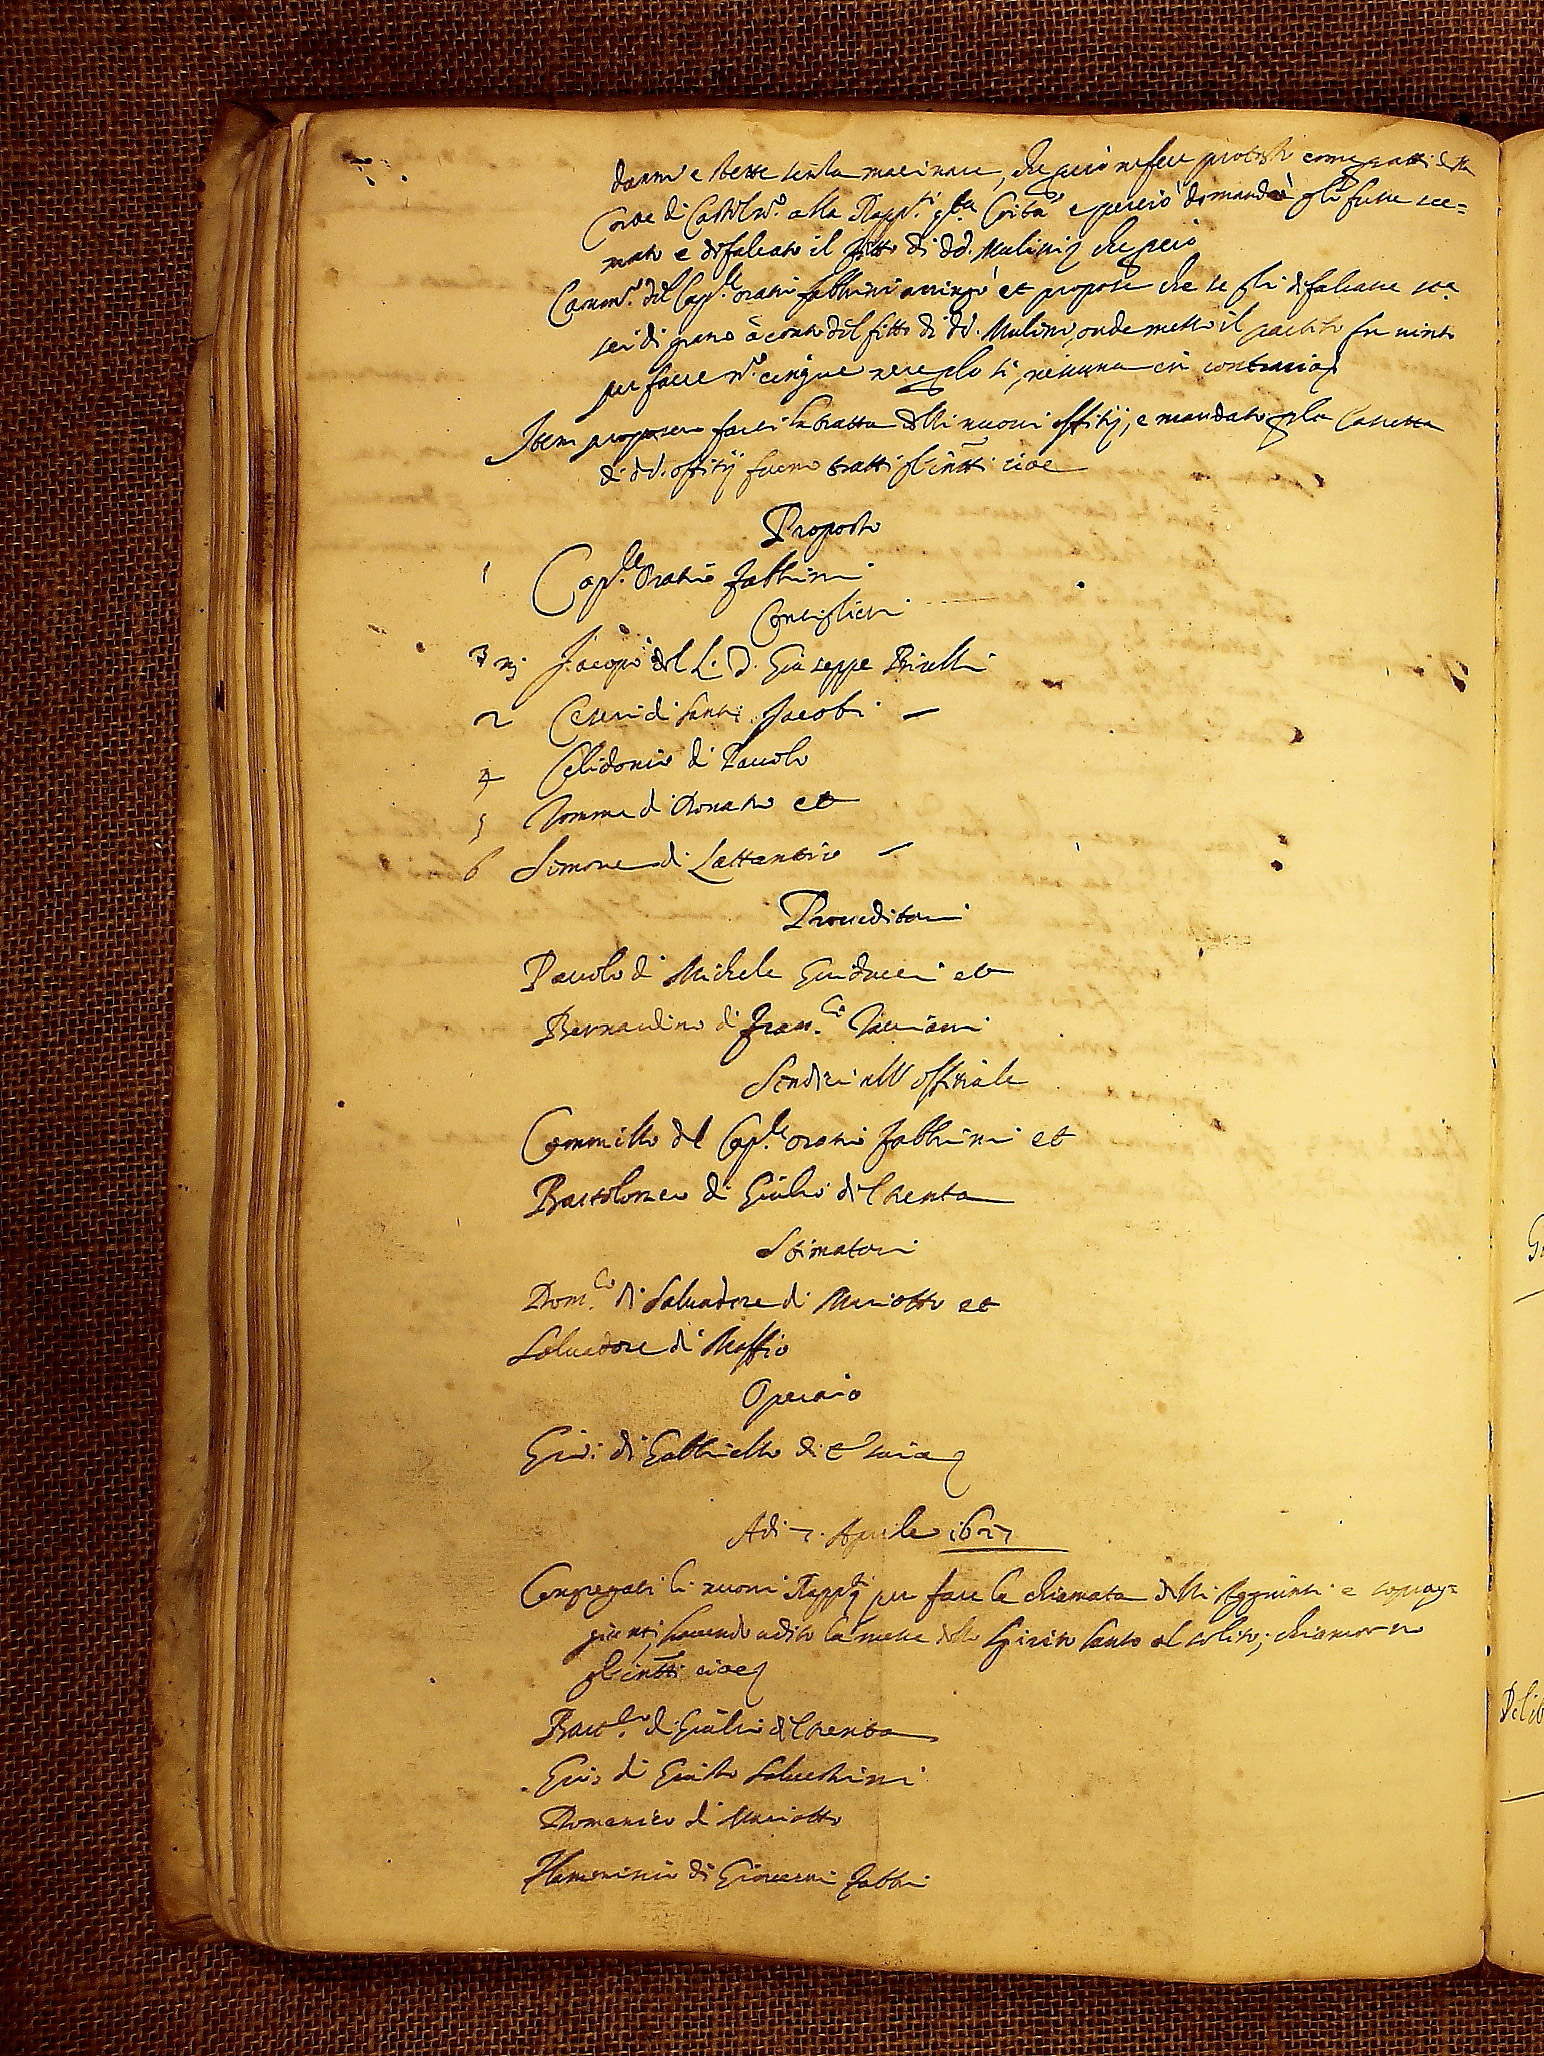 danni e stette senza macinare, che perciò ne fece protesti come p atti della
Corte di Castelnº. alla Rapp.ti qsta Cōità e perciò domandò gli fusse sce=
mato e difalcato il fitto di dd. Mulini che perciò
Camm.º del Cap.º oratio fabbrini arringò et propose che se gli difalcasse sca
sei di grano à conto del fitto di dd. Mulini, onde messo il partito fu uinto
per faue nº. cinque nere plo sì, nessuna in contrario
Item proposero farsi la tratta delli nuoui offitij, e mandato p la Cassetta
di dd. offitij furno tratti gl'infti cioe
Proposto
1 Cap.º Oratio fabbrini
Consiglieri
3 Jacopo del L. D. Giuseppe
2 Ceseri di Santi Jacobi
4 Celidonio di Pauolo
5 Tomme di Donato et
6 Simone di Lattantio
Proueditori
Pauolo di Michele Guiducci et
Bernardino di Fran.co
Sindici all' offitiale
Cammillo del Cap.º oratio fabbrini et
Bartolomeo di Giulio del Chenta
Stimatori
Dom.co di Saluadore di Mariotto et
Saluadore di Maffio
Operaio
Gio: di Gabbriello di
Adi 7. Aprile 1627
Congregati li nuoui Rapp.ti per fare la chiamata delli Aggiunti e sopragg=
giunti, hauendo udito la messa dello Spirito Santo al solito, chiamorno
gl'infti cioe
Bart.eo di Giulio del Chenta
Gio: di Giusto Saluestrini
Domenico di Mariotto
Flamminio di Giouanni fabbri